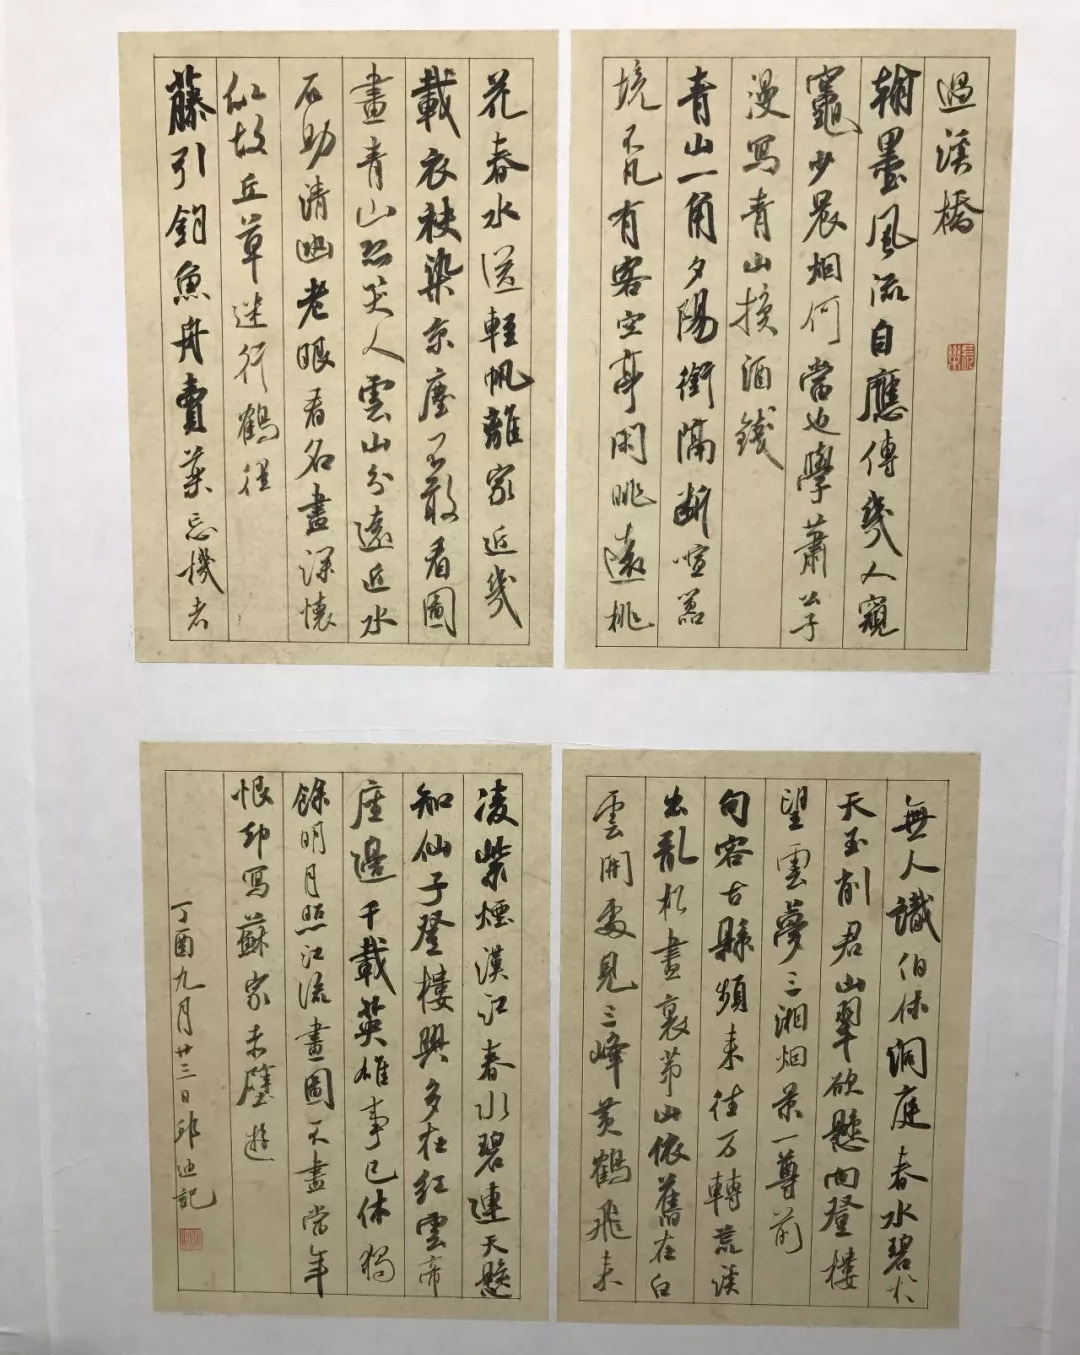 過溪橋
翰墨風流自應傳幾人窺
竈少晨烟何當也學蕭公子
漫寫青山換酒錢
青山一角夕陽銜隔斷喧囂
境不凡有客空亭閑眺遠桃
花春水送輕帆離家近幾
載衣袂染京塵不敢看圖
畫青山恐笑人雲山分遠近水
石助清幽老眼看名畫深懷
似故丘草迷行鶴徑
藤引釣魚舟賣藥忘機者
無人識伯休洞庭春水碧於
天玉削君山翠欲懸向登樓
望雲夢三湘烟景一尊前
句容古縣頻來往万轉荒溪
出亂松畫裏茅山依舊在白
雲開處見三峰黃鶴飛來
凌紫煙漢江春水碧連天懸
知仙子登樓興多在紅雲帝
座邊千載英雄事已休獨
餘明月照江流畫圖不盡當年
恨却寫蘇家赤壁遊
丁酉九月廿三日 迪記